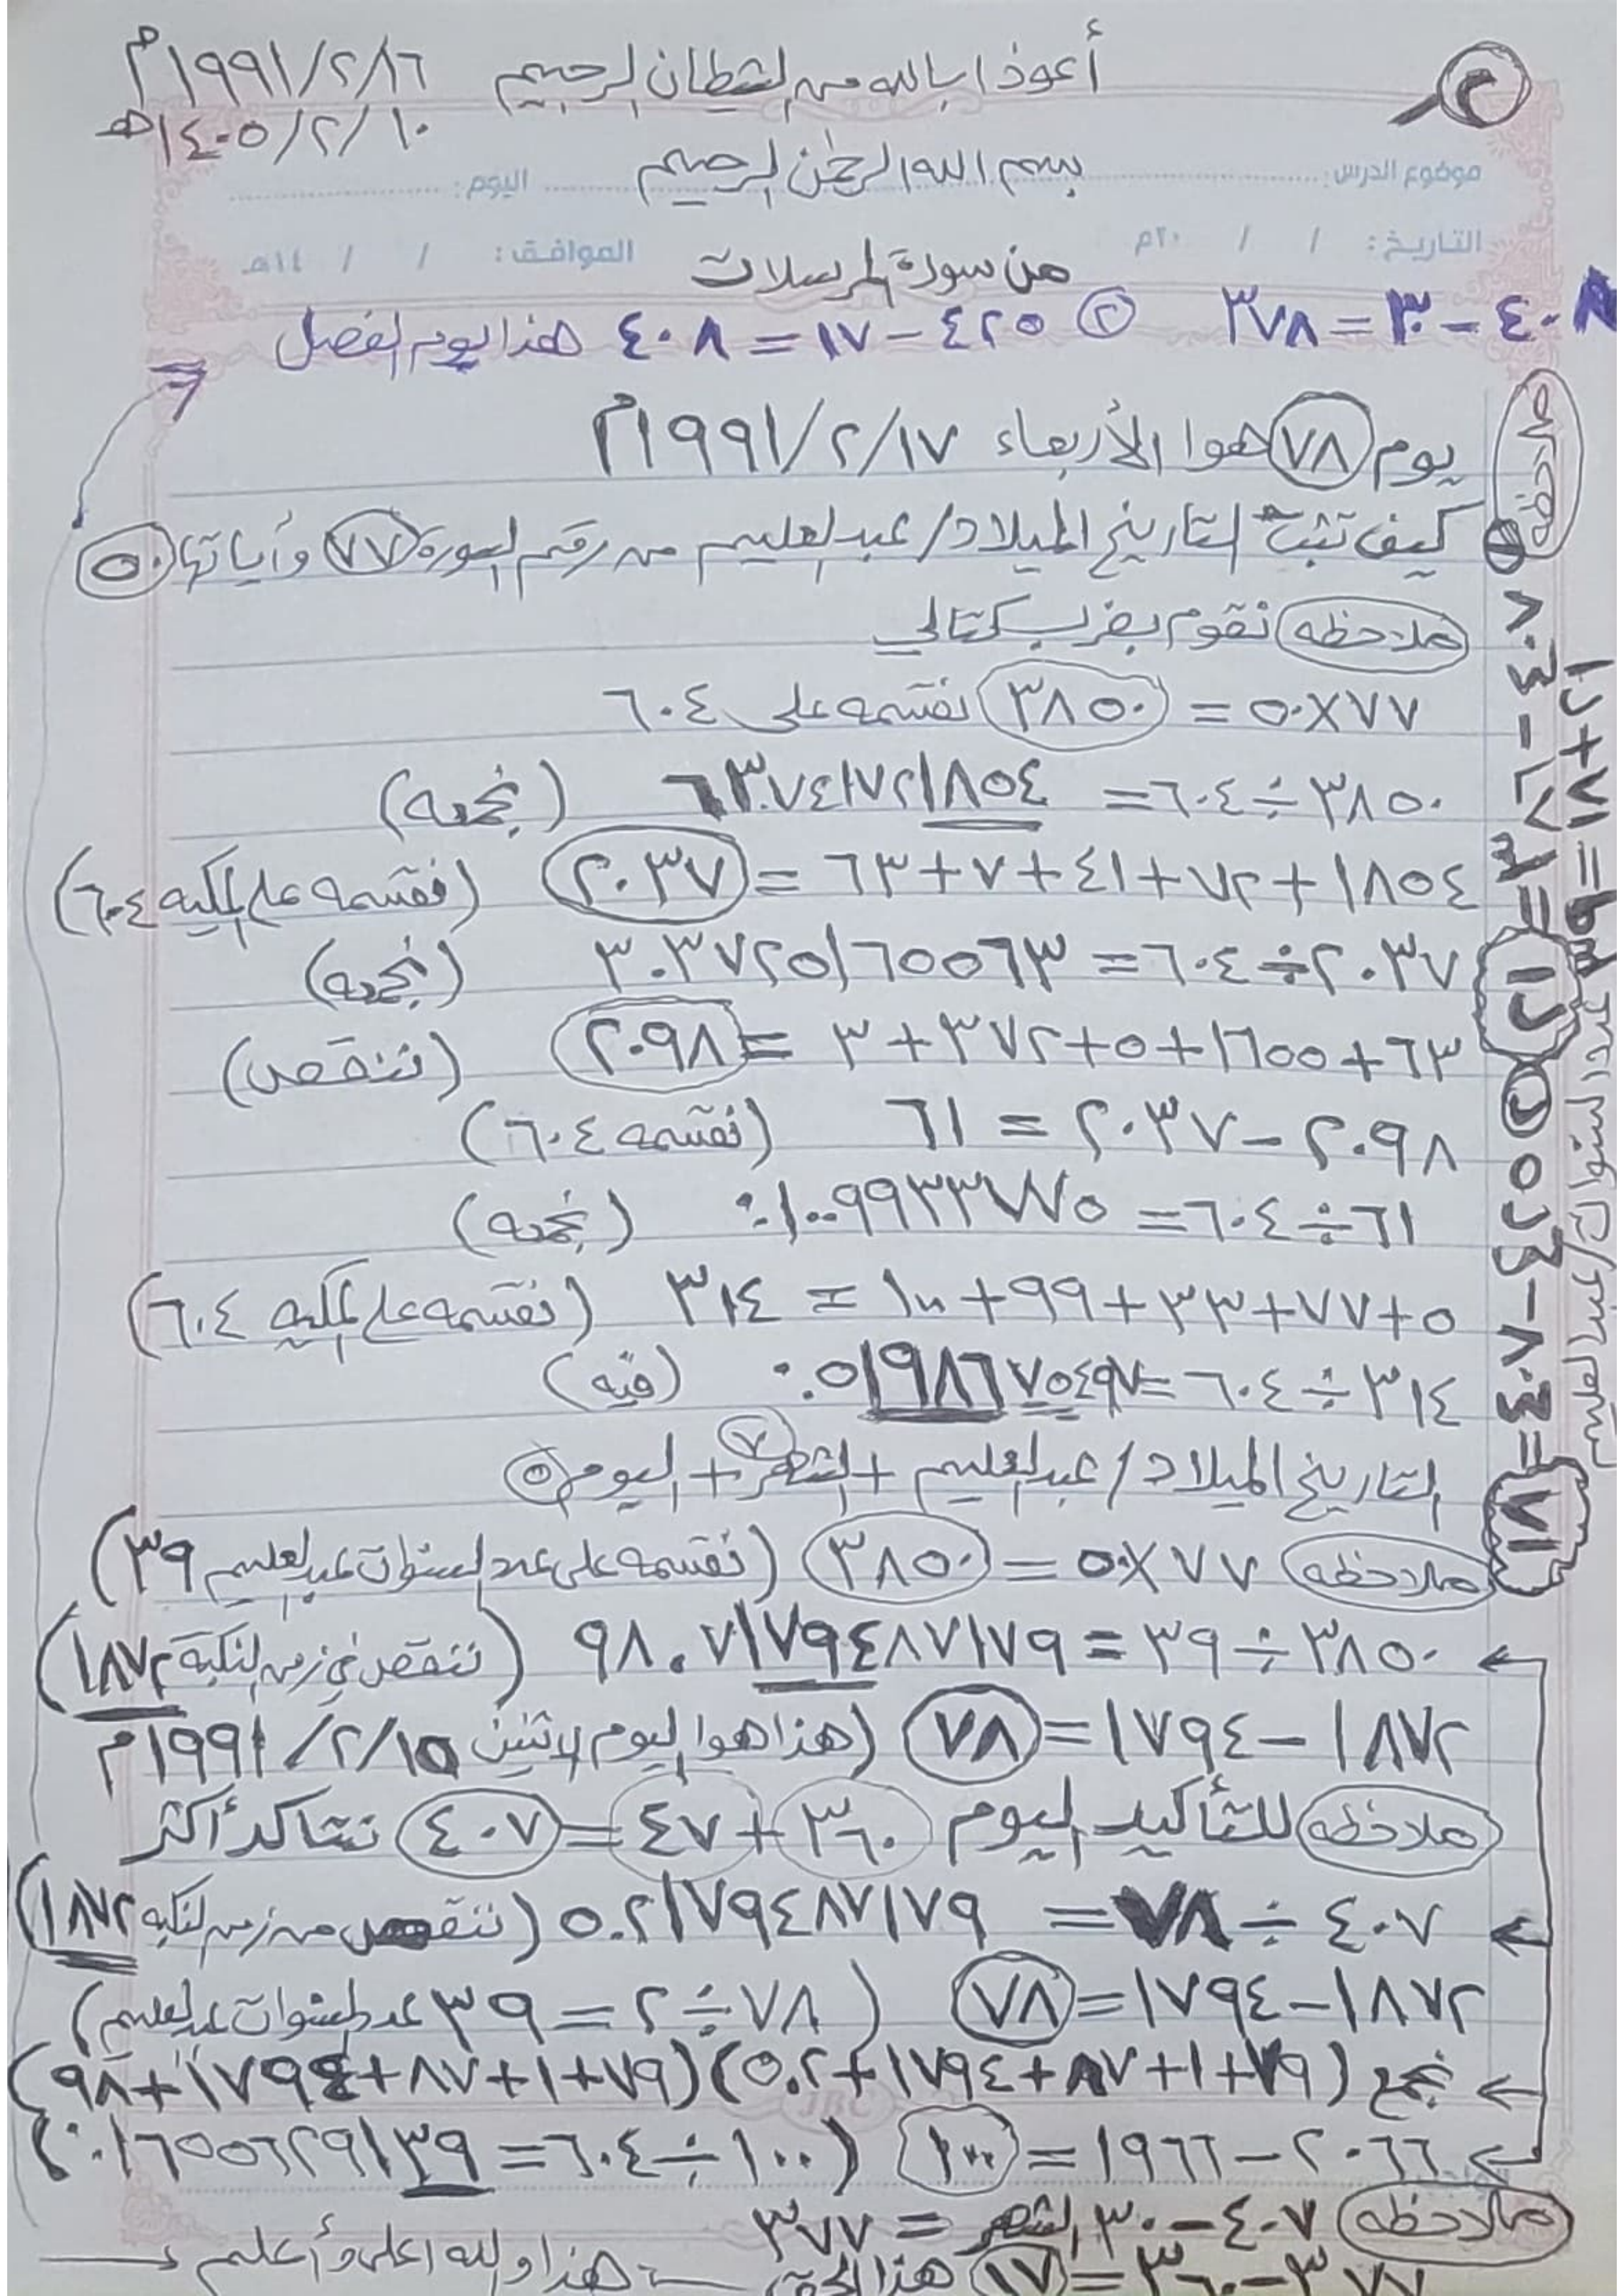 ٢
أعوذ بالله من الشيطان الرجيم ١٩٩١/٢/١٦م
١٤٠٥/٢/١٠هـ
بسم الله الرحمن الرحيم
موضوع الدرس: اليوم:
التاريخ: / / ٢٠م الموافق: / / ١٤هـ
من سورة المرسلات
٤٠٨ - ٣٠ = ٣٧٨ ② ٤٢٥ - ١٧ = ٤٠٨ هذا يوم الفصل
يوم ٧٨ هوا الأربعاء ١٩٩١/٢/١٧م
كيف تثبت التاريخ الميلاد/عبدالعليم من رقم السورة ٧٧ وأياتها ٥٠
ملاحظه نقوم بضرب كتالي
٧٧×٥٠ = ٣٨٥٠ نقسمه على ٦٠٤
٣٨٥٠ ÷ ٦٠٤ = ٦٣٧٤١٧٢١٨٥٤ (نجمعه)
١٨٥٤ + ٧٢ + ٤١ + ٧ + ٦٣ = ٢٠٣٧ (نقسمه على المكيه ٦٠٤)
٢٠٣٧ ÷ ٦٠٤ = ٣٠٣٧٢٥١٦٥٥٦٣ (نجمعه)
٦٣ + ١٦٥٥ + ٥ + ٣٧٢ + ٣ = ٢٠٩٨ (ننقص)
٢٠٩٨ - ٢٠٣٧ = ٦١ (نقسمه ٦٠٤)
٦١ ÷ ٦٠٤ = ٠.١٠٠٩٩٣٣٧٧٥ (نجمعه)
٥ + ٧٧ + ٣٣ + ٩٩ + ١٠٠ = ٣١٤ (نقسمه على المكيه ٦٠٤)
٣١٤ ÷ ٦٠٤ = ٠.٥١٩٨٦٧٥٤٩٧ (فيه)
التاريخ الميلاد/عبدالعليم + الشهر ٧ + اليوم ٥
ملاحظه ٧٧×٥٠ = ٣٨٥٠ (نقسمه على عدد السنوات عبدالعليم ٣٩)
٣٨٥٠ ÷ ٣٩ = ٩٨.٧١٧٩٤٨٧١٧٩ (ننقص في زمن النكبة ١٨٧٢)
١٨٧٢ - ١٧٩٤ = ٧٨ (هذا هوا اليوم الاثنين ١٩٩١/٢/١٥م
ملاحظه للتأكيد اليوم ٣٦٠ + ٤٧ = ٤٠٧ نتاكد أكثر
٤٠٧ ÷ ٧٨ = ٥.٢١٧٩٤٨٧١٧٩ (ننقص من زمن النكبه ١٨٧٢)
١٨٧٢ - ١٧٩٤ = ٧٨ (٧٨ ÷ ٢ = ٣٩ عدد السنوات عبدالعليم)
نجمع (٧٩+١+٨٧+١٧٩٤+٥.٢) (٧٩+١+٨٧+١٧٩٤+٩٨)
٢٠٦٦ - ١٩٦٦ = ١٠٠ (١٠٠ ÷ ٦٠٤ = ٠.١٦٥٥٦٢٩١٣٩)
ملاحظه ٤٠٧ - ٣٠ الشهر = ٣٧٧
٣٧٧ - ٣٦٠ = ١٧ هذا الحق هذا والله اعلى وأعلم
ملاحظه ① ٤٠٨ - ٣٨٧ = ٢١ ② ٤٢٥ - ٤٠٨ = ١٧
٢١ + ١٨ = ٣٩ عدد السنوات/عبدالعليم